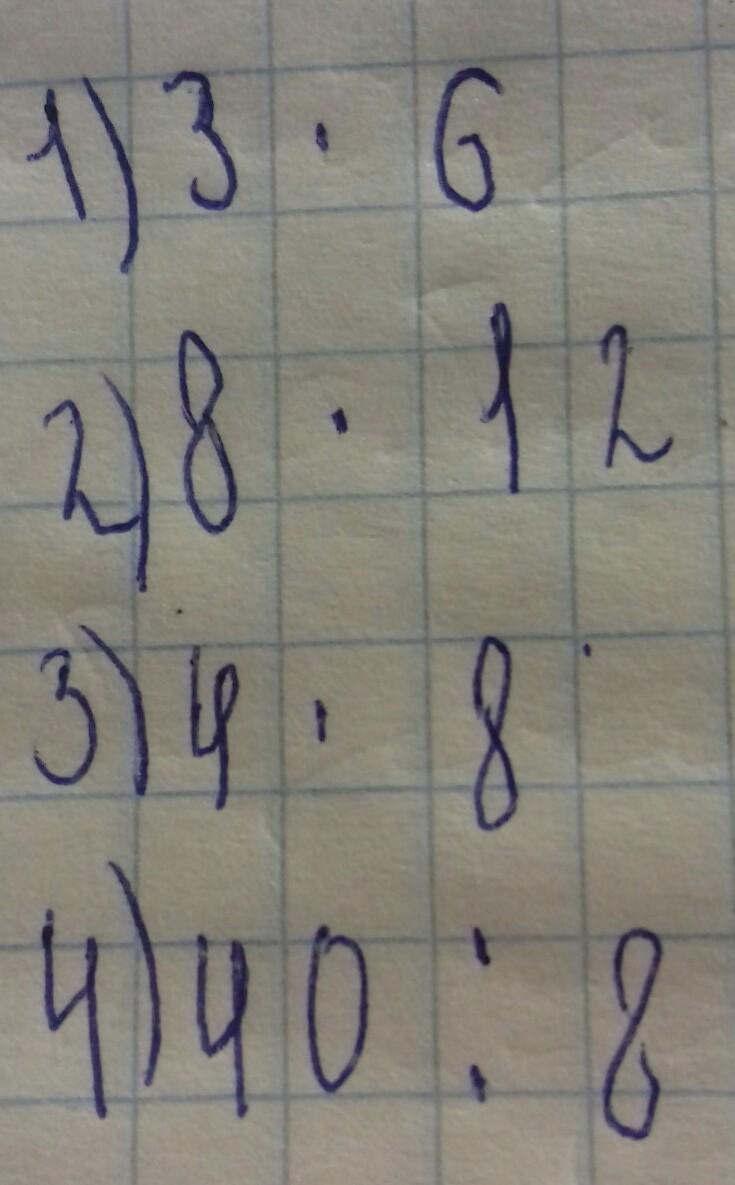 1) 3 · 6
2) 8 · 12
3) 4 · 8
4) 40 : 8